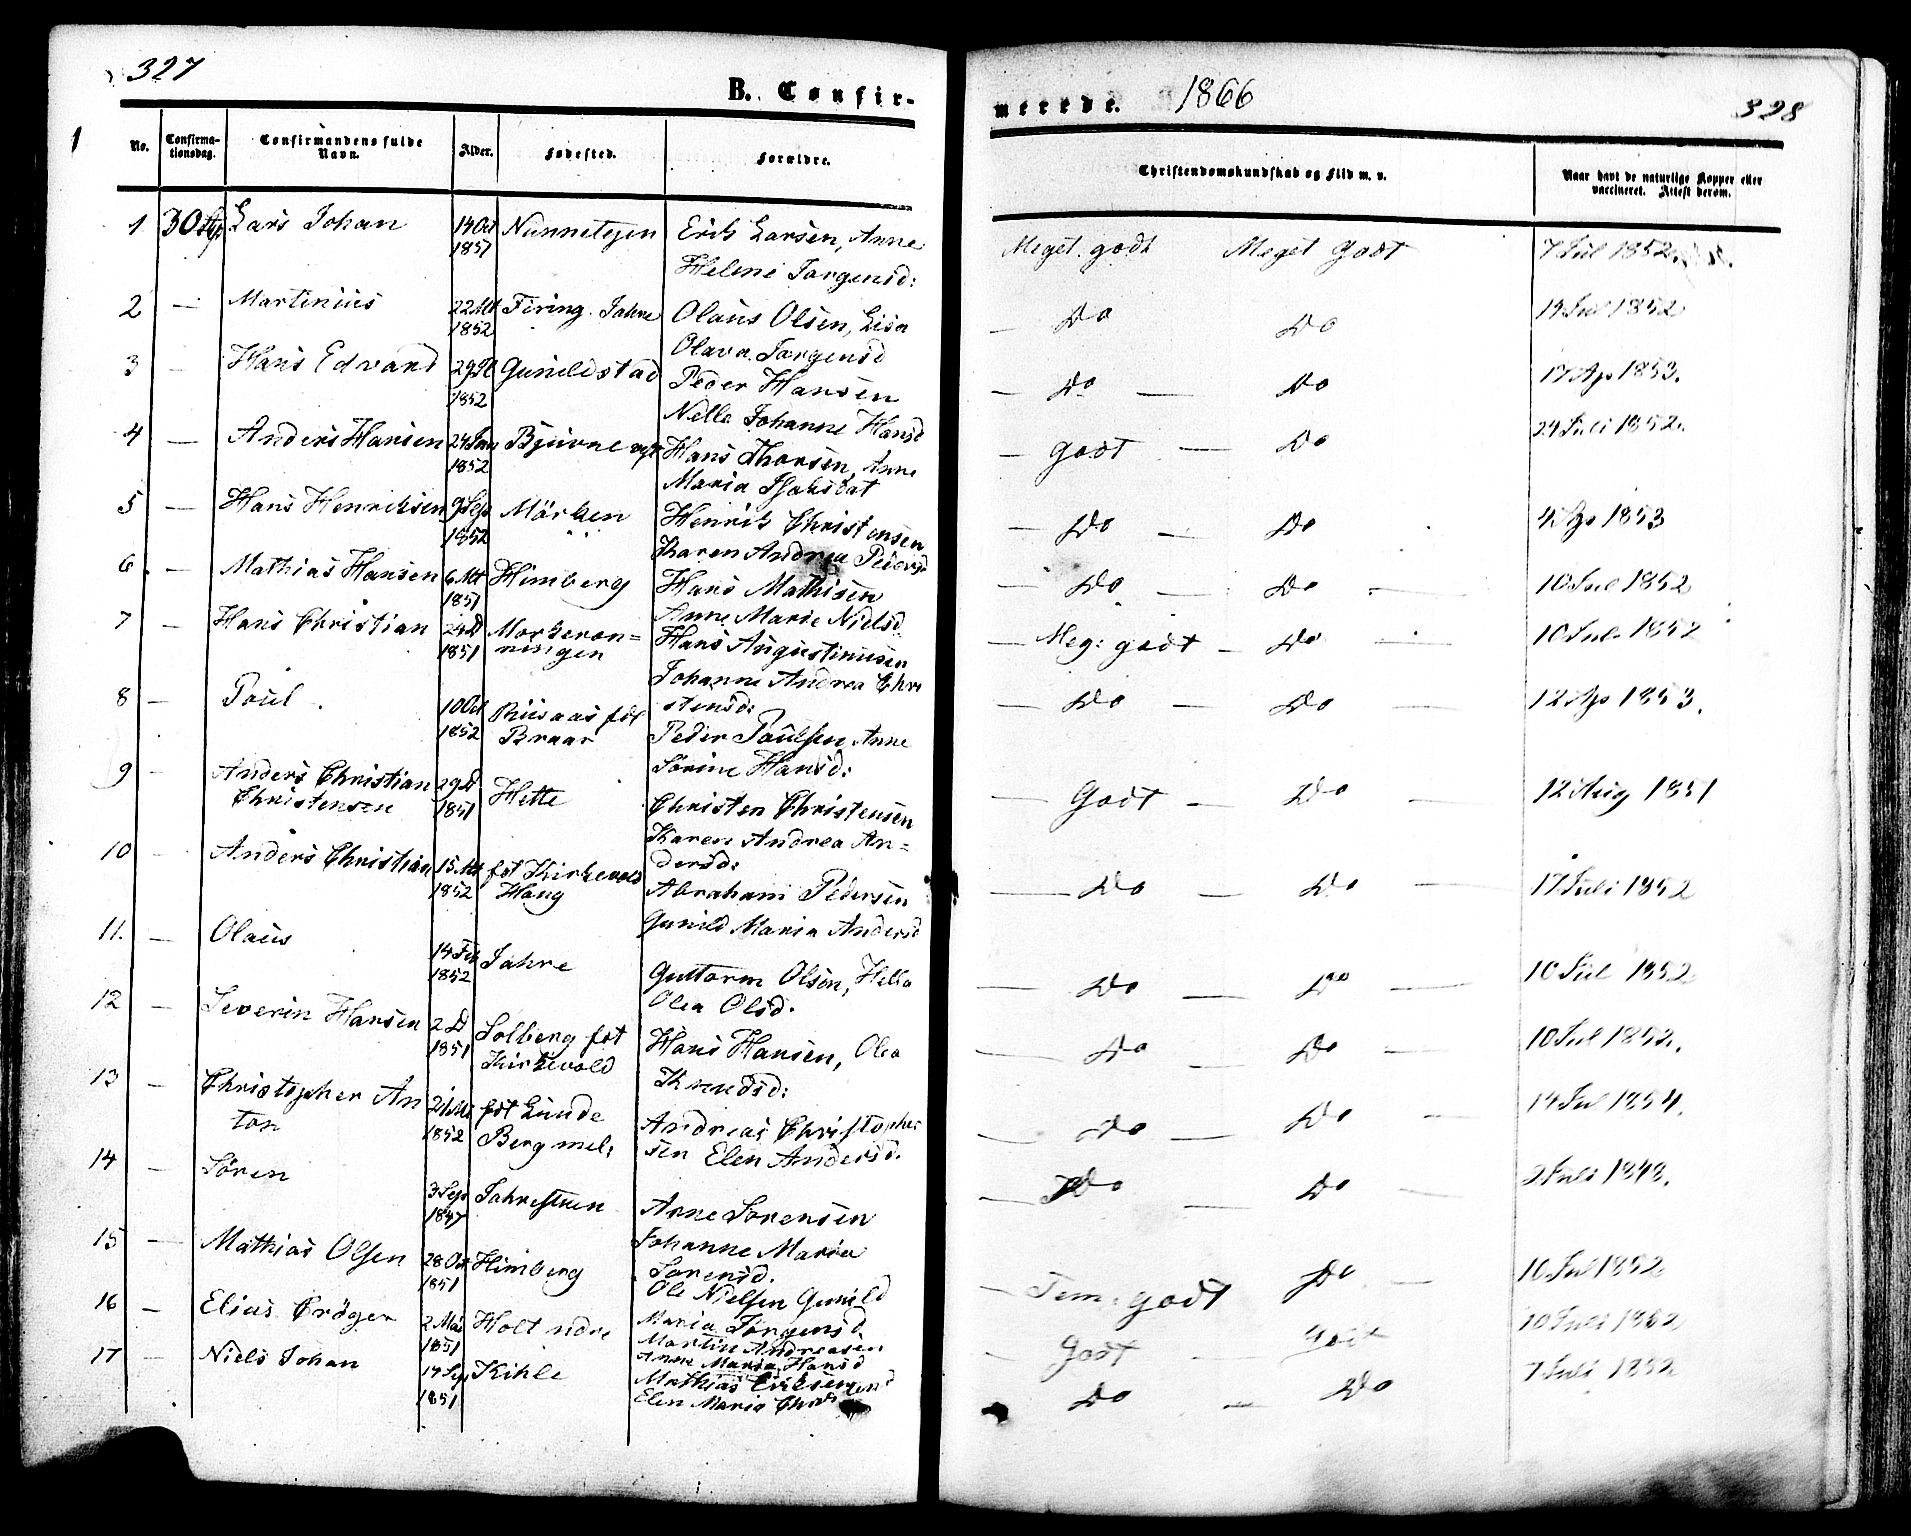 327
B. Confir-
1
No.
Confirma-
tionsdag.
Confirmandens fulde
Navn.
Alder.
Fødested.
Forældre.
1 30 Lars Johan 14 Oct Nunnetejen Erik Larsen, Anne
1851 Helene Jørgensd:
2 — Martinius 22 1852 Firing. Jahre Olaus Olsen, Lisa
Olava Jørgensd
3 — Hans Edvard 29 1852 Gunildstad Peder Hansen
Nelle Johanne Hansd
4 — Anders Hansen 24 Jan 1852 Bjuerne Hans Thorsen, Anne
Maria
5 — Hans Henriksen 9 Sep 1852 Mörken Henrik Christensen
Karen Andrea Pedersd
6 — Mathias Hansen 6 1851 Himberg Hans Mathisen
Anne Marie Nielsd
7 — Hans Christian 24 D 1851 Morkeron=
ningen Hans Augustinusen
Johanne Andrea Chri
stensd:
8 — Poul 10 Oct 1852 fdt
Braar Peder Poulsen Anne
Sörine Hansd:
9 — Anders Christian
Christensen 29 D 1851 Hette Christen Christensen
Karen Andrea An=
dersd:
10 — Anders Christian 15 1852 fdt Kirkevold
Haug Abraham Pedersen
Gunild Maria Andersd
11. — Olaus 14 Feb 1852 Jahre Guttorm Olsen, Hella
Olea Olsd.
12 — Severin Hansen 2 D 1851 Solberg fdt
Kirkevold Hans Hansen, Olea
Knudsd:
13 — Christopher An
ton 21 1852 fdt Lunde
Berg mel: Andreas Christopher
sen Elen Andersd.
14 — Sören 3 Sep 1847 Arne Sorensen
Johanne Maria
Sorensd.
15 — Mathias Olsen 28 Oct 1851 Himberg Ole Nielsen Gunild
Maria Jørgensd
16 — Elias Cröger 2 Mai 1851 Holt Martin Andreasen
Anne Maria Hansd
17 — Niels Johan 17 Sep 1851 Kihle Mathias
Elen Maria
merede. 1866
328
Christendomskundskab og Flid m. v.
Naar havt de naturlige Kopper eller
vaccineret. Attest derom.
Meget godt Meget Godt 7 Jul 1852.
— Do Do 14 Jul 1852
— Do — Do 17 Ap 1853.
— Godt — Do 24 Juli 1852.
— Do — Do 4 Ap 1853
— Do — Do — 10 Jul 1852
— Meg: godt — Do — 10 Jul 1852
— Do — Do — 12 Ap 1853.
— Godt — Do — 12 Aug 1851
— Do — Do — 17 Juli 1852
— Do — Do — 10 Jul 1852
— Do — Do — 10 Jul 1852.
— Do — Do — 14 Jul 1854.
— Do — Do — 2 Juli 1848.
— Tem: godt Do — 10 Jul 1852
Godt — Godt 10 Juli 1852
Do — Do 7 Juli 1852